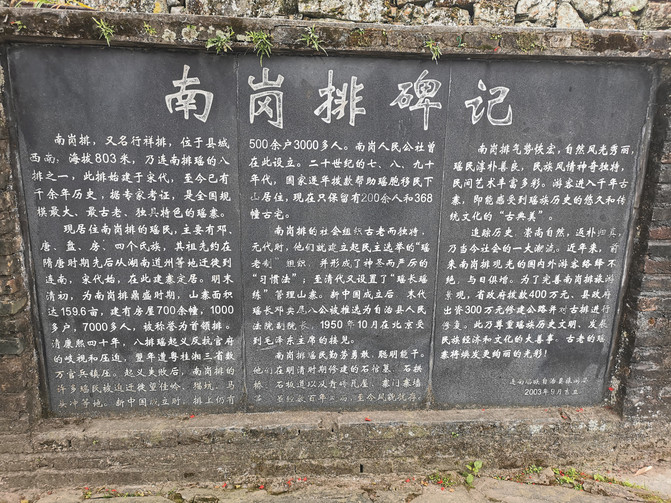 南岗排碑记
南岗排，又名行祥排，位于县城
西南，海拔803米，乃连南排瑶的八
排之一，此排始建于宋代，至今已有
千余年历史，据专家考证，是全国规
模最大、最古老、独具特色的瑶寨。
现居住南岗排的瑶民，主要有邓、
唐、盘、房、四个民族，其祖先约在
隋唐时期先后从湖南道州等地迁徙到
连南，宋代始，在此建寨定居。明末
清初，为南岗排鼎盛时期，山寨面积
达159.6亩，建有房屋700余幢，1000
多户，7000多人，被称誉为首领排。
清康熙四十年，八排瑶起义反抗官府
的歧视和压迫，翌年遭粤桂湘三省数
万官兵镇压。起义失败后，南岗排的
许多瑶民被迫迁徙望佳岭、
头冲等地。新中国成立时，排上仍有
500余户3000多人。南岗人民公社曾
在此设立。二十世纪的七、八、九十
年代，国家逐年拨款帮助瑶胞移民下
山居住，现在只保留有200余人和368
幢古宅。
南岗排的社会组织古老而独特，
元代时，他们就建立起民主选举的“瑶
老制”组织，并形成了神圣而严厉的
“习惯法”；至清代又设置了“瑶长瑶
练”管理山寨。新中国成立后，末代
瑶长邓买尾八公被推选为自治县人民
法院副院长，1950年10月在北京受
到毛泽东主席的接见。
南岗排瑶民勤劳勇敢，聪明能干。
他们在明清时期修建的石棺墓、石拱
桥、石板道以及青砖瓦屋、寨门寨墙
等，虽经数百年，至今风貌犹存。
南岗排气势恢宏，自然风光秀丽，
瑶民淳朴善良，民族风情神奇独特，
民间艺术丰富多彩。游客进入千年古
寨，即能感受到瑶族历史的悠久和传
统文化的“古典美”。
追踪历史、崇尚自然、返朴归真，
乃当今社会的一大潮流。近年来，前
来南岗排观光的国内外游客络绎不
绝，与日俱增。为了完善南岗排旅游
景观，省政府拨款400万元、县政府
出资300万元修建公路并对古排进行
修复。此乃尊重瑶族历史文明，发展
民族经济和文化的大善事。古老的瑶
寨将焕发更绚丽的光彩！
连南瑶族自治县旅游局
2003年9月立